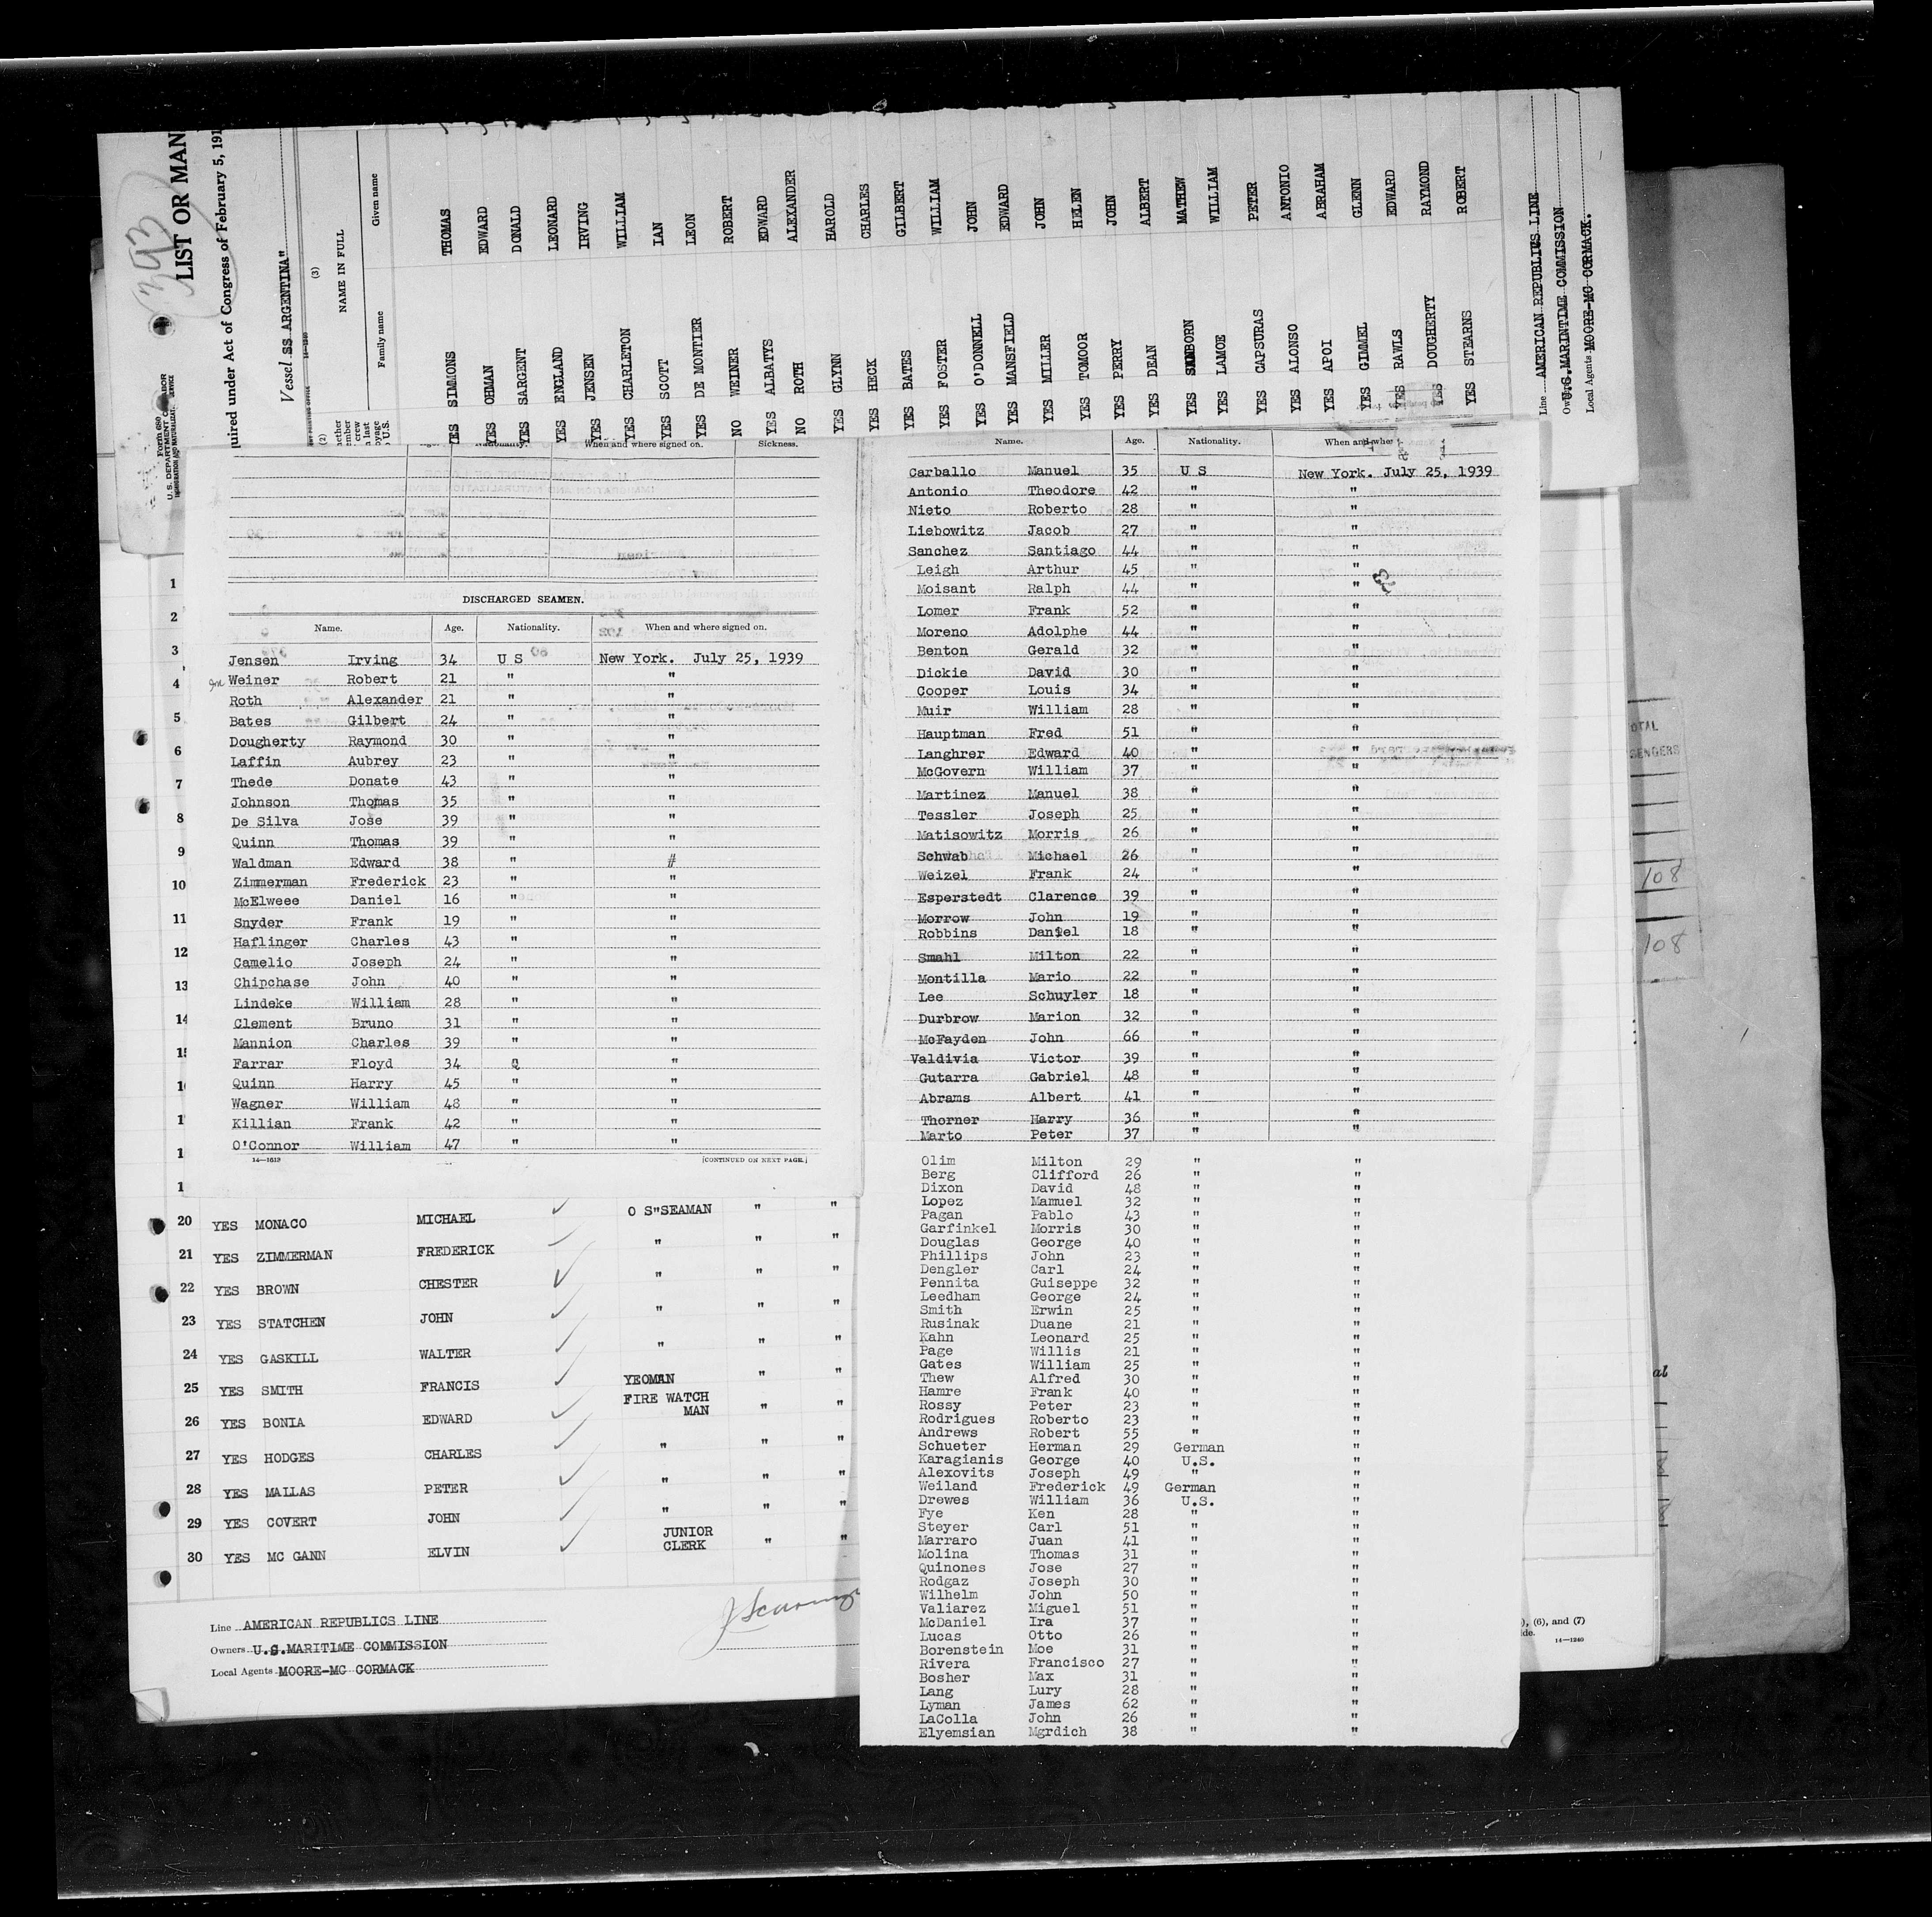 393
LIST OR MAN
quired under Act of Congress of February 5, 191
Vessel SS ARGENTINA"
U. S. DEPARTMENT OF LABOR
(3)
NAME IN FULL
Family name Given name
(2)
YES SIMMONS THOMAS
YES OHMAN EDWARD
YES SARGENT DONALD
YES ENGLAND LEONARD
YES JENSEN IRVING
YES CHARLETON WILLIAM
YES SCOTT IAN
YES DE MONTIER LEON
NO WEINER ROBERT
YES ALBATYS EDWARD
NO ROTH ALEXANDER
YES GLYNN HAROLD
YES HECK CHARLES
YES BATES GILBERT
YES FOSTER WILLIAM
YES O'DONNELL JOHN
YES MANSFIELD EDWARD
YES MILLER JOHN
YES TOMOOR HELEN
YES PERRY JOHN
YES DEAN ALBERT
YES SANBORN MATHEW
YES LAMOE WILLIAM
YES CAPSURAS PETER
YES ALONSO ANTONIO
YES APOI ABRAHAM
YES GIMMEL GLENN
YES RAWLS EDWARD
YES DOUGHERTY RAYMOND
YES STEARNS ROBERT
Line AMERICAN REPUBLICS LINE
U.S.MARITIME COMMISSION
Local Agents MOORE-MC CORMACK.
Nationality. When and where signed on. Sickness.
DISCHARGED SEAMEN.
Name. Age. Nationality. When and where signed on.
Jensen Irving 34 U S New York. July 25, 1939
Weiner Robert 21 " "
Roth Alexander 21 " "
Bates Gilbert 24 " "
Dougherty Raymond 30 " "
Laffin Aubrey 23 " "
Thede Donate 43 " "
Johnson Thomas 35 " "
De Silva Jose 39 " "
Quinn Thomas 39 " "
Waldman Edward 38 " #
Zimmerman Frederick 23 " "
McElweee Daniel 16 " "
Snyder Frank 19 " "
Haflinger Charles 43 " "
Camelio Joseph 24 " "
Chipchase John 40 " "
Lindeke William 28 " "
Clement Bruno 31 " "
Mannion Charles 39 " "
Farrar Floyd 34 " "
Quinn Harry 45 " "
Wagner William 48 " "
Killian Frank 42 " "
O'Connor William 47 " "
14—1613 [CONTINUED ON NEXT PAGE.]
Name. Age. Nationality. When and whe
Carballo Manuel 35 U S New York. July 25, 1939
Antonio Theodore 42 " "
Nieto Roberto 28 " "
Liebowitz Jacob 27 " "
Sanchez Santiago 44 " "
Leigh Arthur 45 " "
Moisant Ralph 44 " "
Lomer Frank 52 " "
Moreno Adolphe 44 " "
Benton Gerald 32 " "
Dickie David 30 " "
Cooper Louis 34 " "
Muir William 28 " "
Hauptman Fred 51 " "
Langhrer Edward 40 " "
McGovern William 37 " "
Martinez Manuel 38 " "
Tessler Joseph 25 " "
Matisowitz Morris 26 " "
Schwab Michael 26 " "
Weizel Frank 24 " "
Esperstedt Clarence 39 " "
Morrow John 19 " "
Robbins Daniel 18 " "
Smahl Milton 22 " "
Montilla Mario 22 " "
Lee Schuyler 18 " "
Durbrow Marion 32 " "
McFayden John 66 " "
Valdivia Victor 39 " "
Gutarra Gabriel 48 " "
Abrams Albert 41 " "
Thorner Harry 36 " "
Marto Peter 37 " "
Olim Milton 29 " "
Berg Clifford 26 " "
Dixon David 48 " "
Lopez Mamuel 32 " "
Pagan Pablo 43 " "
Garfinkel Morris 30 " "
Douglas George 40 " "
Phillips John 23 " "
Dengler Carl 24 " "
Pennita Guiseppe 32 " "
Leedham George 24 " "
Smith Erwin 25 " "
Rusinak Duane 21 " "
Kahn Leonard 25 " "
Page Willis 21 " "
Gates William 25 " "
Thew Alfred 30 " "
Hamre Frank 40 " "
Rossy Peter 23 " "
Rodrigues Roberto 23 " "
Andrews Robert 55 " "
Schueter Herman 29 German "
Karagianis George 40 U.S. "
Alexovits Joseph 49 " "
Weiland Frederick 49 German "
Drewes William 36 U.S. "
Fye Ken 28 " "
Steyer Carl 51 " "
Marraro Juan 41 " "
Molina Thomas 31 " "
Quinones Jose 27 " "
Rodgaz Joseph 30 " "
Wilhelm John 50 " "
Valiarez Miguel 51 " "
McDaniel Ira 37 " "
Lucas Otto 26 " "
Borenstein Moe 31 " "
Rivera Francisco 27 " "
Bosher Max 31 " "
Lang Lury 28 " "
Lyman James 62 " "
LaColla John 26 " "
Elyemsian Mgrdich 38 " "
1
2
3
4
5
6
7
8
9
10
11
12
13
14
20 YES MONACO MICHAEL O S"SEAMAN " "
21 YES ZIMMERMAN FREDERICK " " "
22 YES BROWN CHESTER " " "
23 YES STATCHEN JOHN " " "
24 YES GASKILL WALTER " " "
25 YES SMITH FRANCIS YEOMAN " "
26 YES BONIA EDWARD FIRE WATCH MAN " "
27 YES HODGES CHARLES " " "
28 YES MALLAS PETER " " "
29 YES COVERT JOHN " " "
30 YES MC GANN ELVIN JUNIOR CLERK " "
Line AMERICAN REPUBLICS LINE
Owners U.S.MARITIME COMMISSION
Local Agents MOORE-MC CORMACK
OTAL
SENGERS
108
108
al
), (6), and (7)
ide.
14—1240